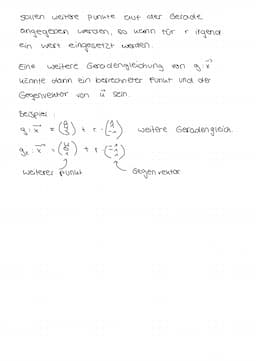 sollen weitere Punkte auf der Gerade
angegeben werden, so kann für r irgend
ein Wert eingesetzt werden.
Eine weitere Geradengleichung von g: x⃗
könnte dann ein berechneter Punkt und der
Gegenvektor von u⃗ sein.
Beispiel:
g: x⃗ = + r · weitere Geradengleich.
g₂: x⃗ = + r
weiterer Punkt Gegenvektor